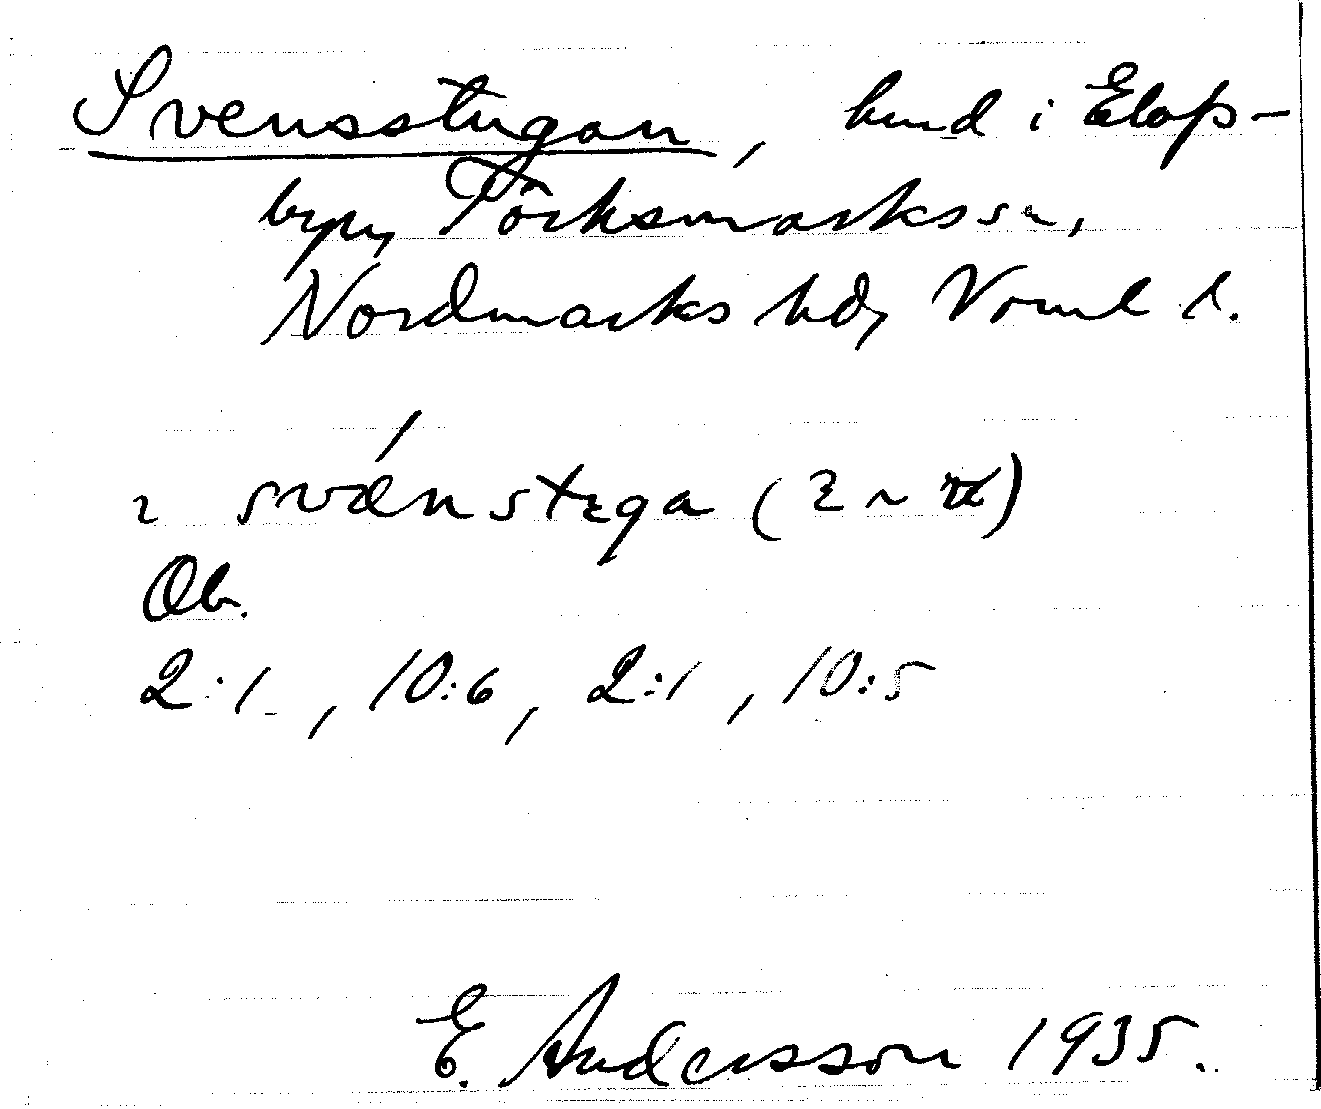 Svensstugan, hmd i Elofs-
byn, Töcksmarks sn,
Nordmarks hd, Värml l.
2 svǽnstɛga (2 ~
Ob.
2:1, 10:6, 2:1, 10:5
E. Andersson 1935.